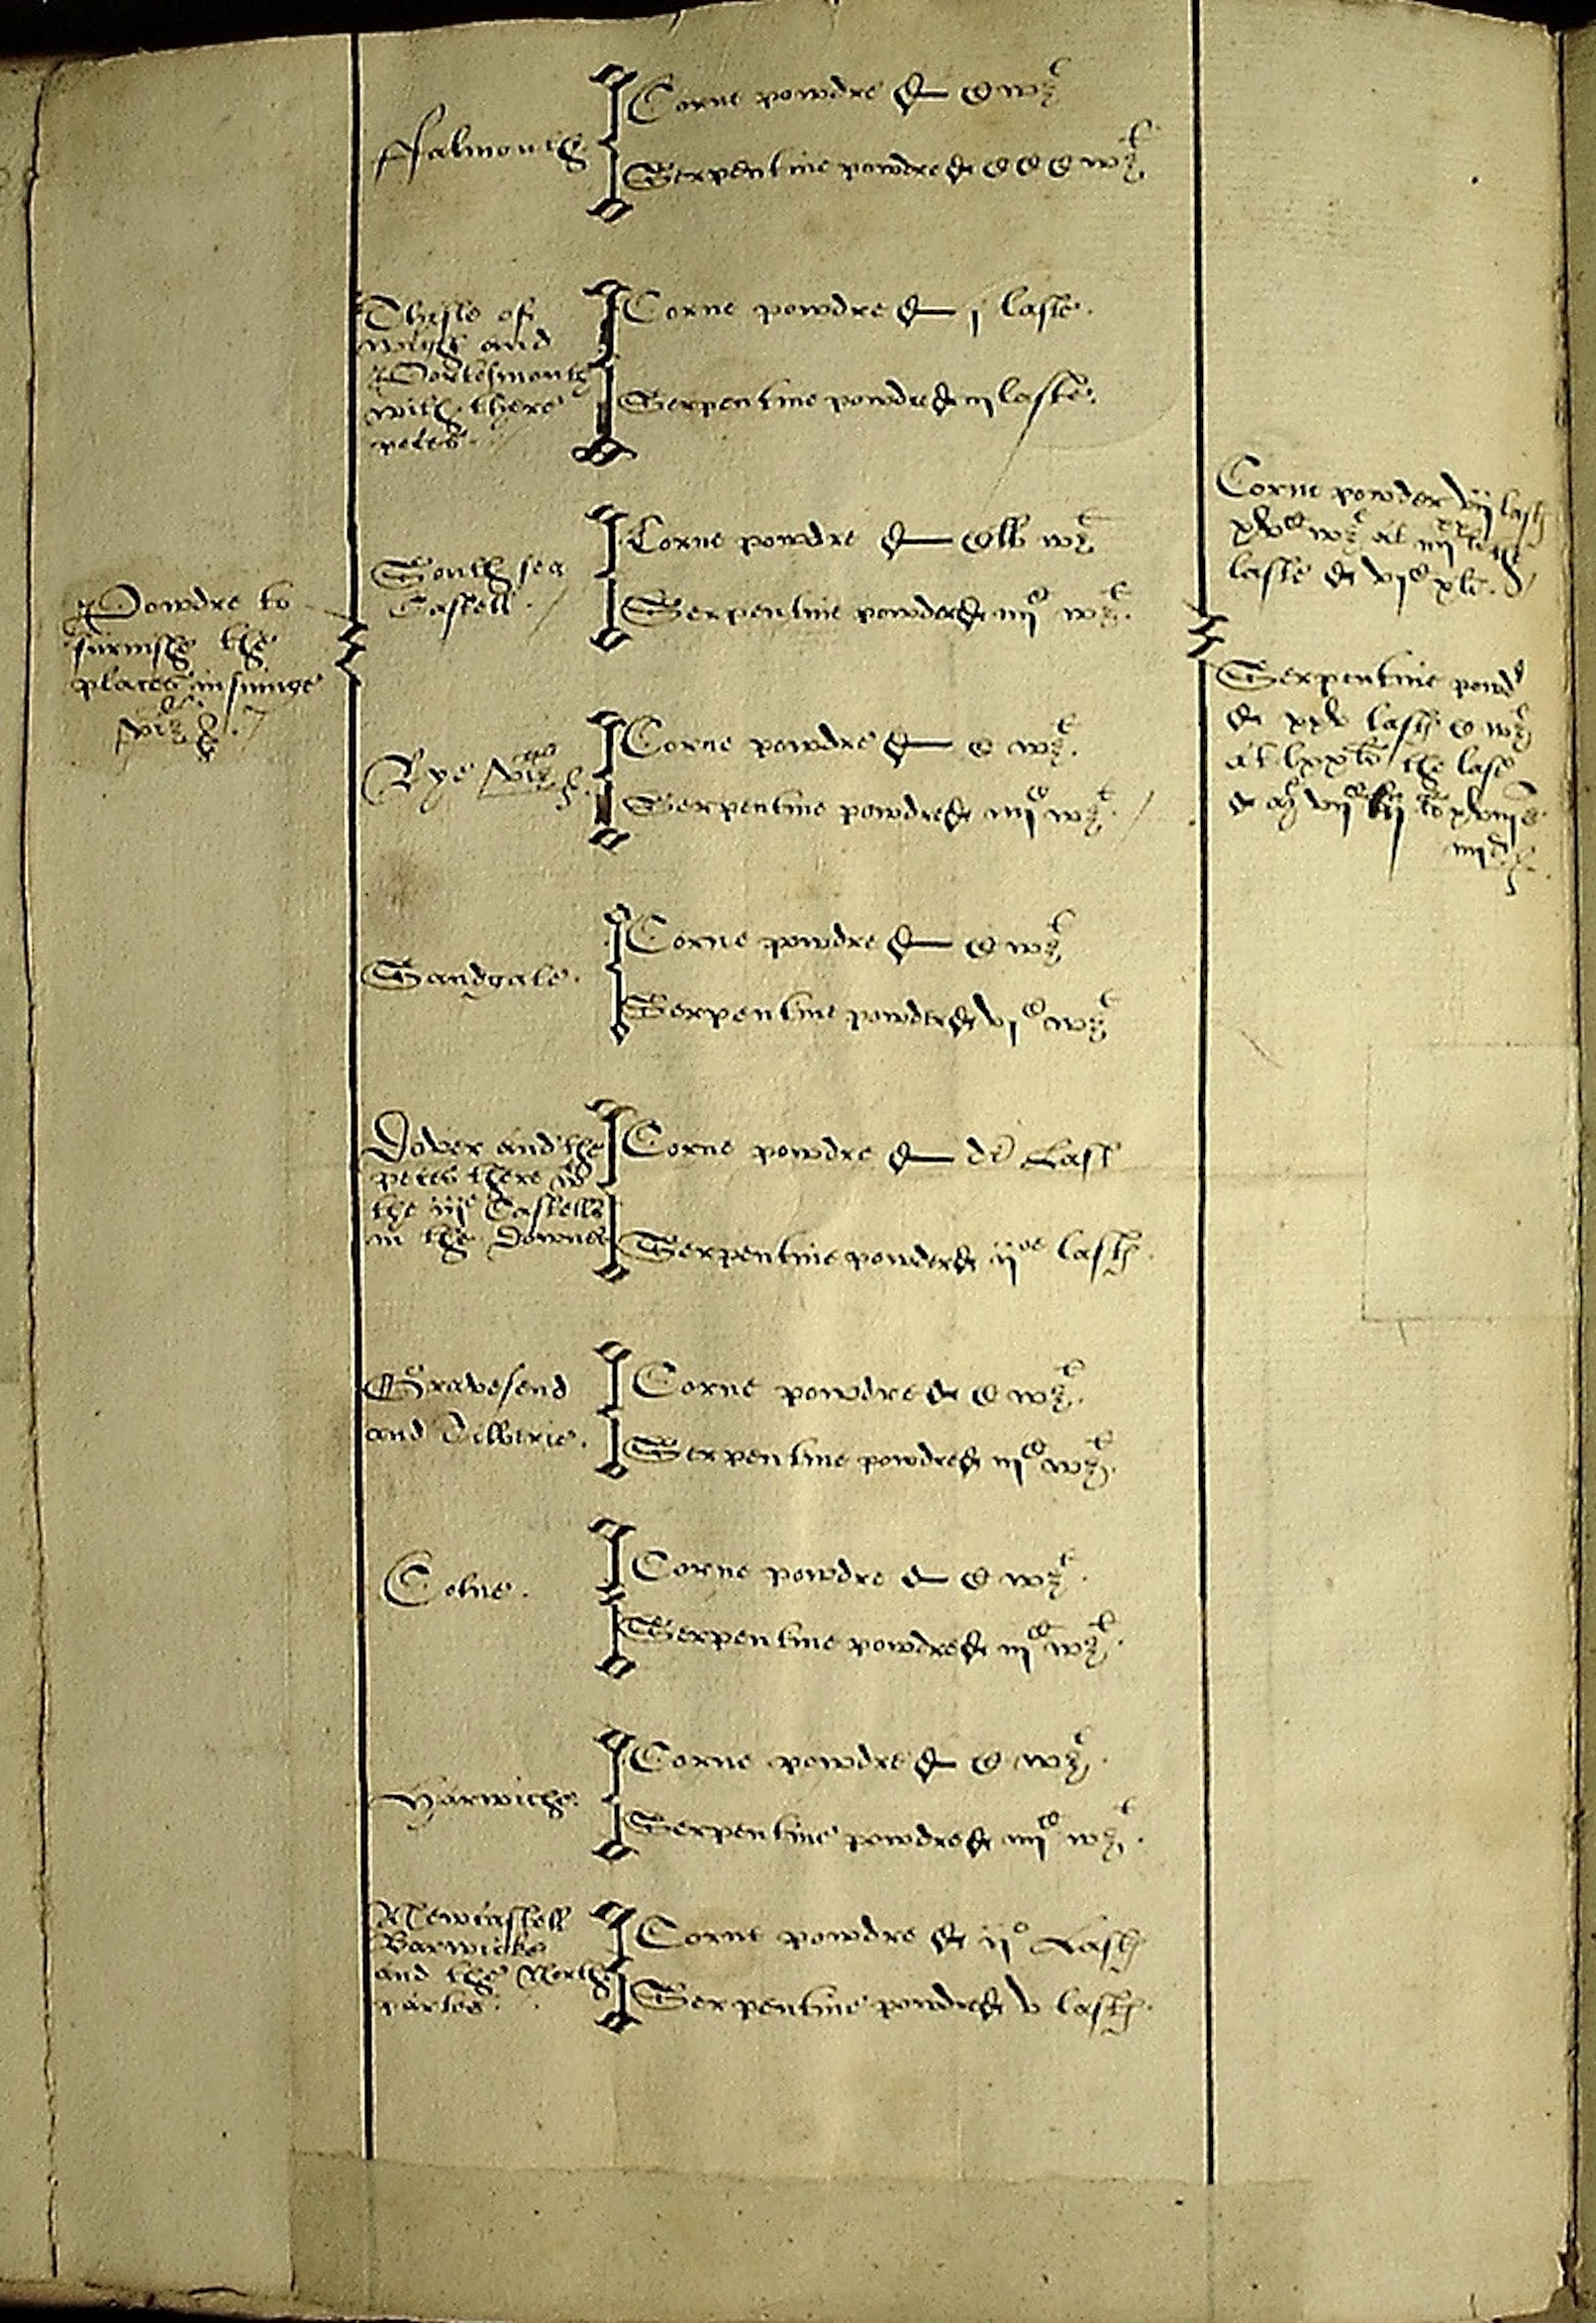 Powdre to
furnishe the
places insuinge
viz
Falmouthe
Corne powdre di C wt
Serpentine powdre C C C wt
Thisle of
wight and
Portesmouth
with there
peces
Corne powdre j laste
Serpentine powdre iij laste
South sea
Castell
Corne powdre wt
Serpentine powdre iiijC wt
Rye
Corne powdre C wt
Serpentine powdre iiijC wt
Sandgate
Corne powdre C wt
Serpentine powdre vjC wt
Dover and the
peces there wt
the iij Castells
in the Downes
Corne powdre di Last
Serpentine powdre ij last
Gravesend
and Tilberie
Corne powdre C wt
Serpentine powdre iijC wt
Colne
Corne powdre C wt
Serpentine powdre iijC wt
Harwiche
Corne powdre C wt
Serpentine powdre iiijC wt
Newcastell
Barwicke
and the North
partes
Corne powdre ij Last
Serpentine powdre v last
Corne powder vij last
wt at the
laste
Serpentine powd
xxv last C wt
at the last